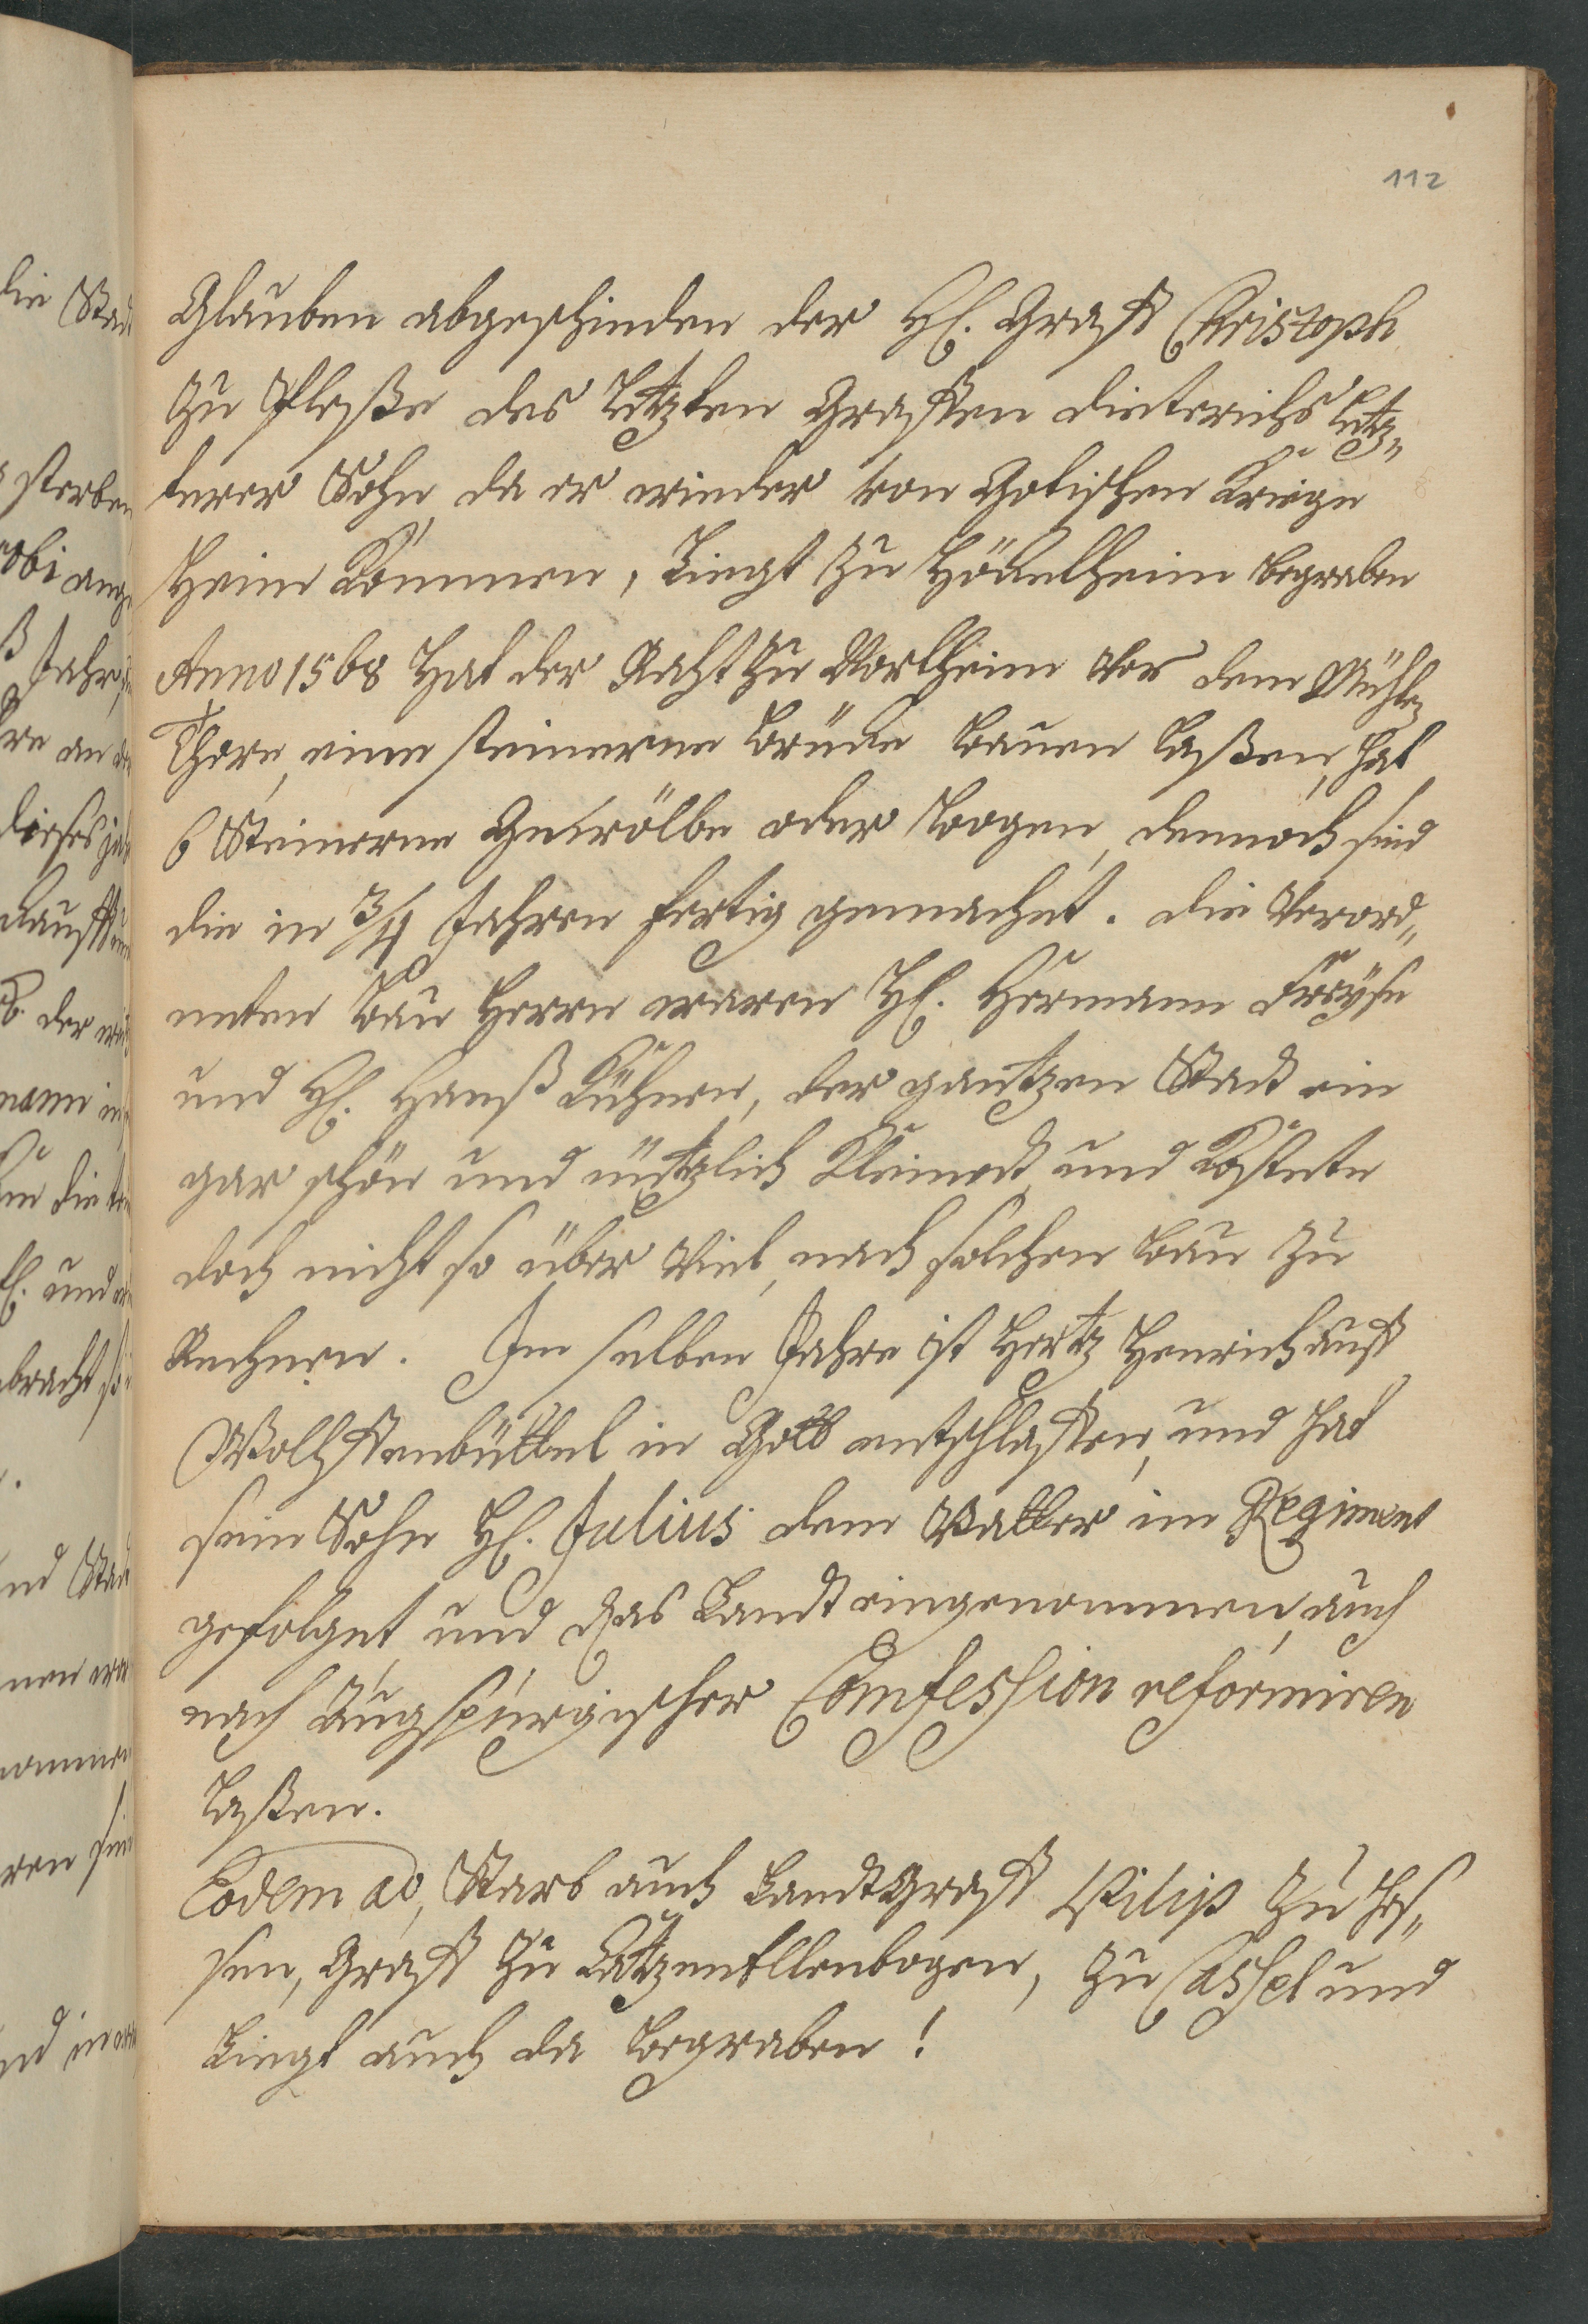 112
Glauben abgeschieden der H. Graff Christoph
zu Pleße des Letzten Graffen Dieterichs Letz„
terer Sohn, da er wieder von Gotischen Kriege
Heim Kommen, Liegt zu Höckelheim begraben
Anno 1568 Hat der Raht zu Northeim Vor dem Mühlen
Thore, eine steinerne Brücke Bauen Laßen, hat
6 Steinerne Gewölbe oder Bogen, dennoch sind
die in 3/4 Jahren fertig gemachet. die Verord„
neten Bau Herrn waren H. Hermann Freyse
und H. Hanß Kühnen, der gantzen Stadt ein
gar schön und nützlich Kleinodt, und Kostete
doch nicht so über Viel, nach solchen Bau zu
Rechnen. Im selben Jahre ist Hertz Henrich auff
Wolffenbüttel in Gott entschlaffen, und hat
sein Sohn H. Julius dem Vatter im Regiment
gefolget, und das Landt eingenommen, auch
nach Augspurgischer Confession reformiren
Laßen.
Eodem ao, Starb auch LandtGraff Vilip zu Hes„
sen, Graff zu Catzenellenbogen, zu Cassel und
Liegt auch da Begraben!
die Stadt
sterben
Jahr,
an
dieses
der
die
und
bracht